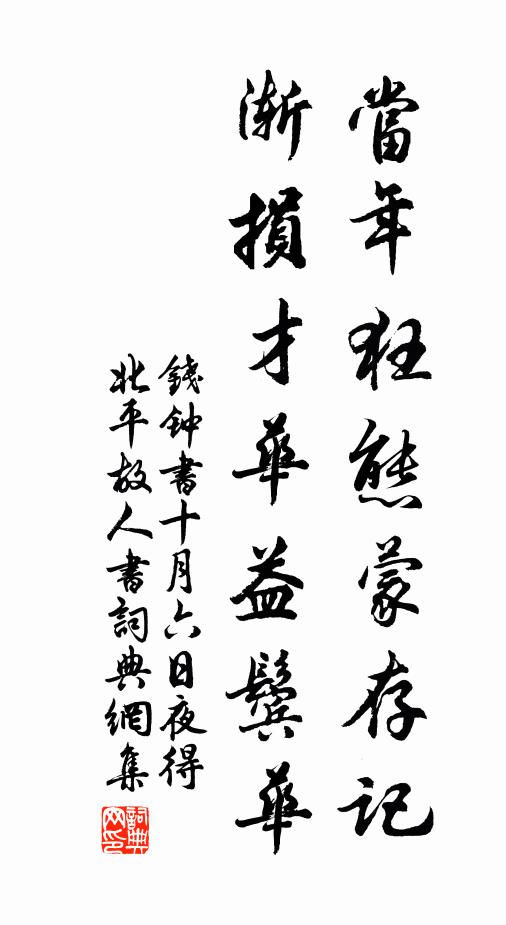 當年狂態蒙存記
漸損才華益鬢華
錢钟書十月六日夜得
北平故人書詞典網集
詞典
网印